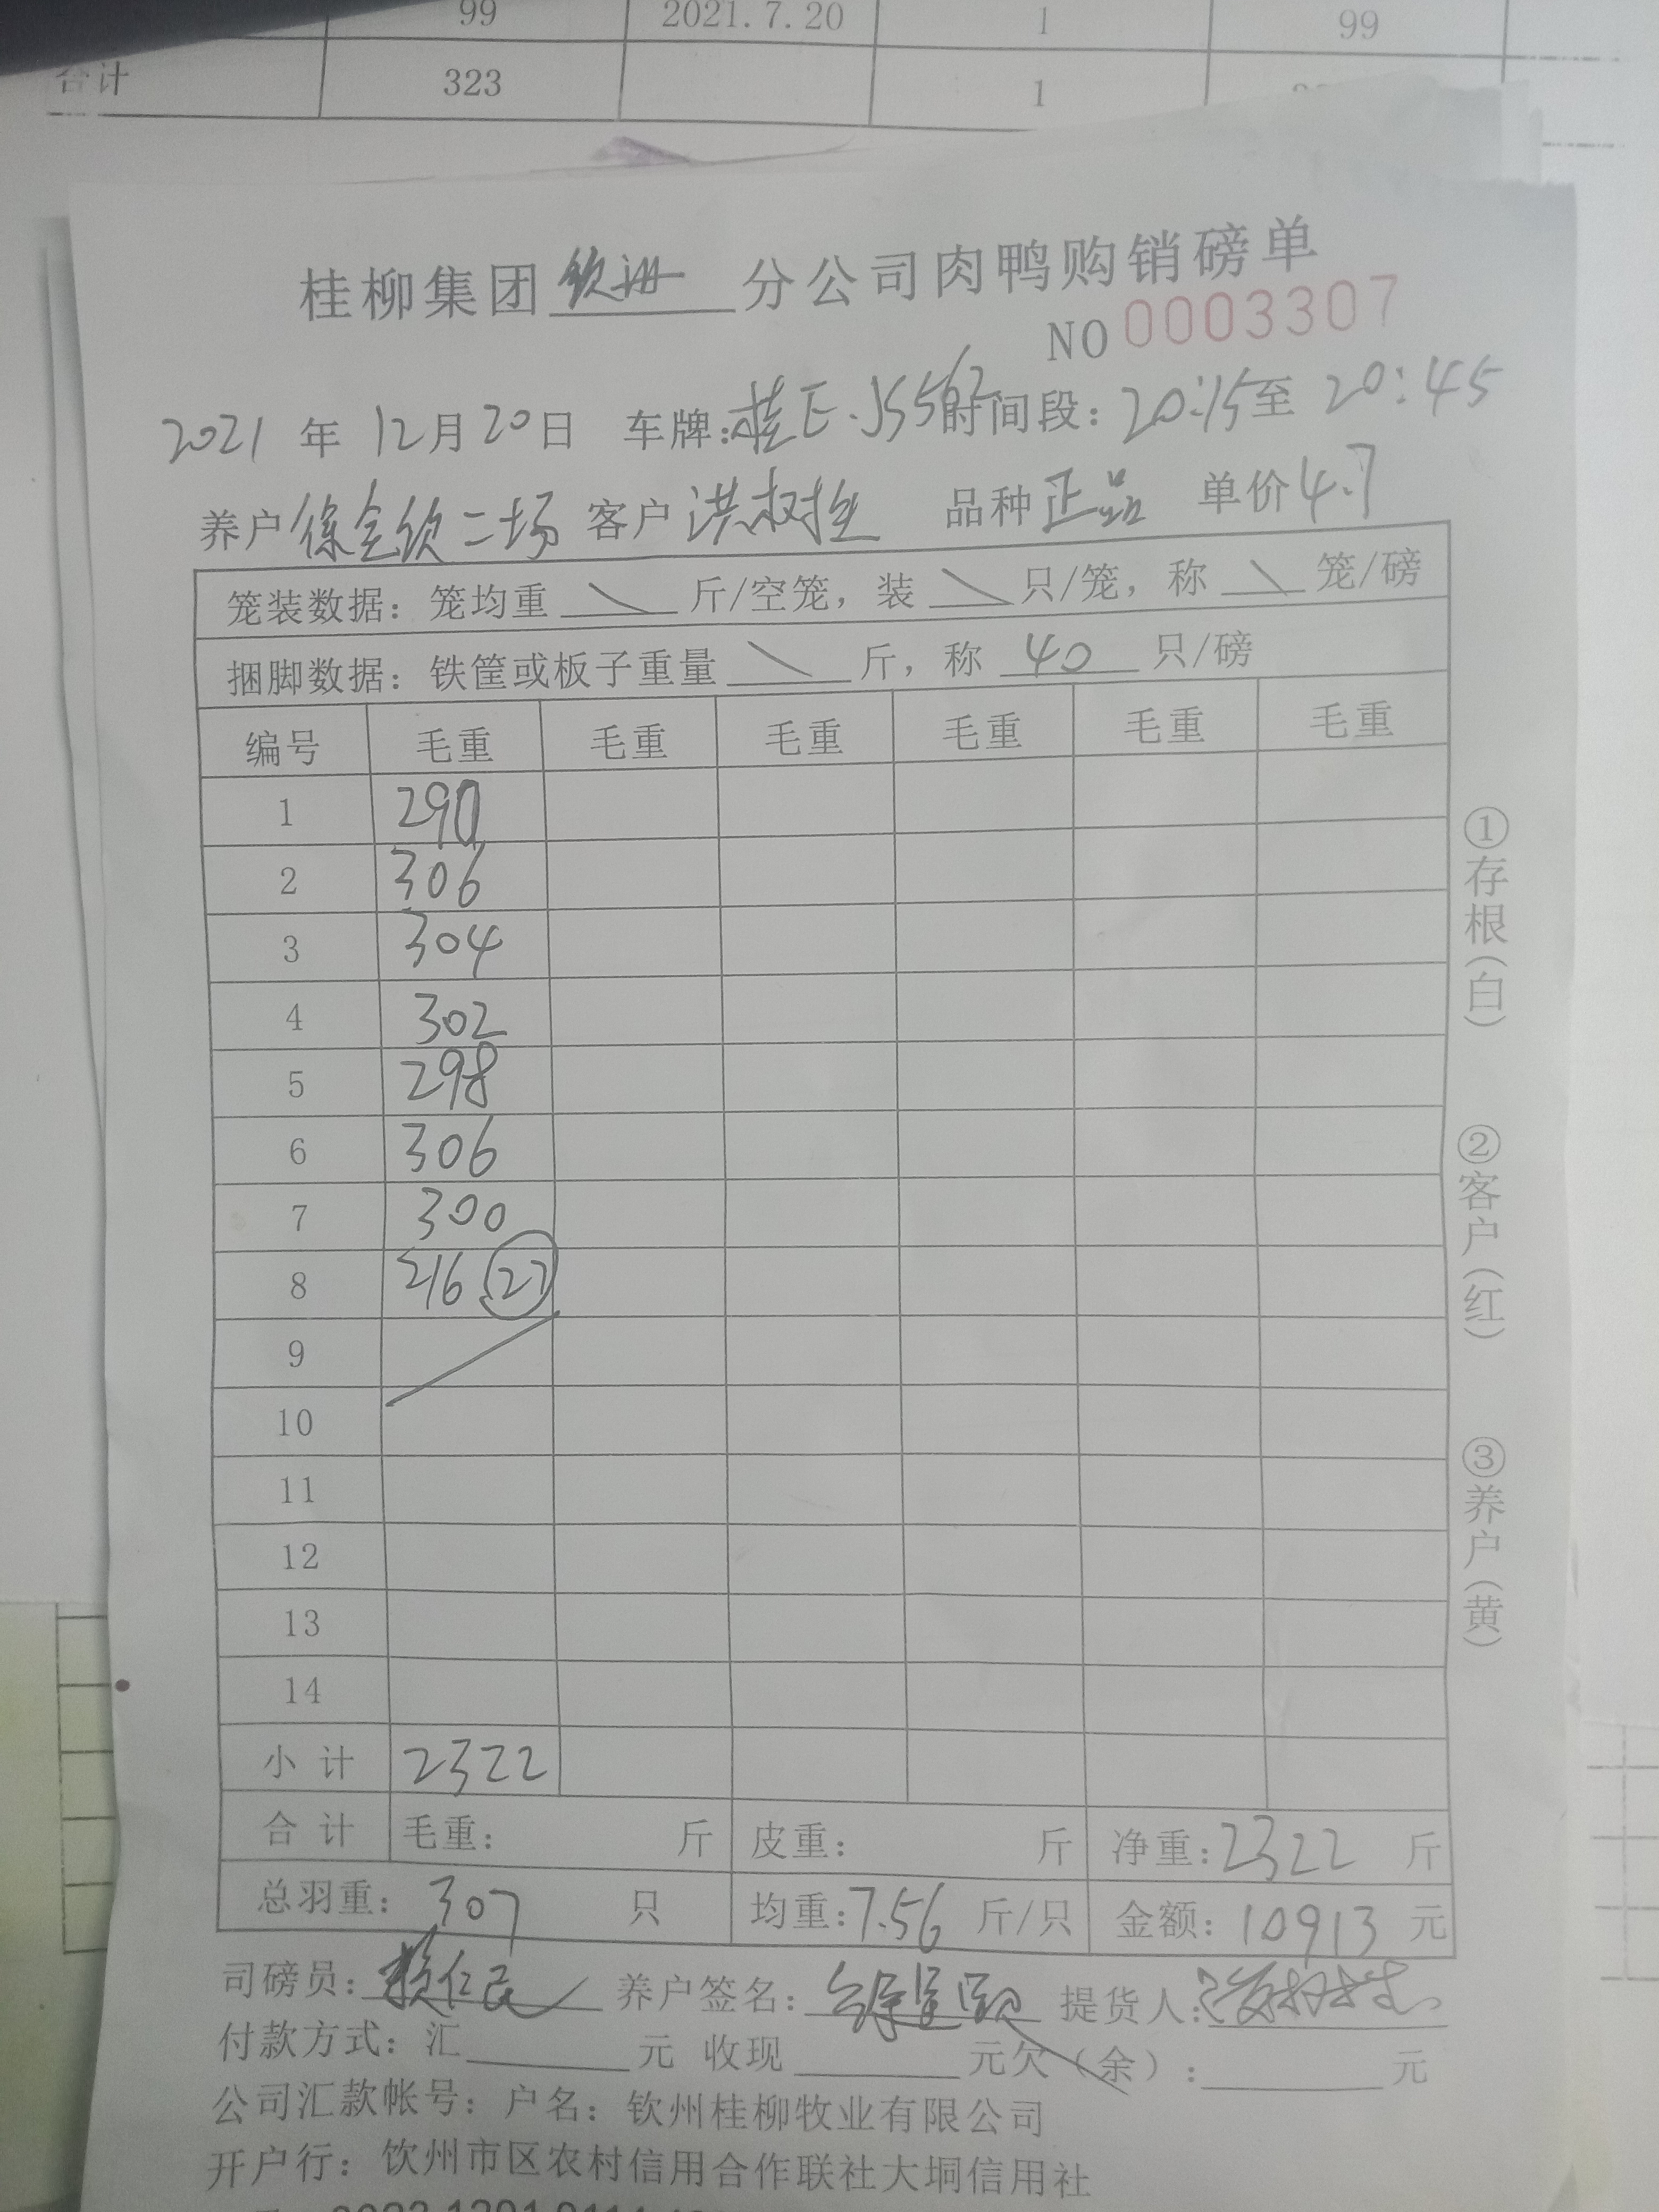 99 2021.7.20 1 99
合计 323 1
桂柳集团钦州分公司肉鸭购销磅单
NO 0003307
2021年12月20日 车牌:桂E·JS562时间段:20:15至20:45
养户徐金钦二场 客户洪树 品种正品 单价4.7
笼装数据:笼均重 \ 斤/空笼,装 \ 只/笼,称 \ 笼/磅
捆脚数据:铁筐或板子重量 \ 斤,称 40 只/磅
编号 毛重 毛重 毛重 毛重 毛重 毛重
1 290
2 306
3 304
4 302
5 298
6 306
7 300
8 216 27
9
10
11
12
13
14
小计 2322
合计 毛重: 斤 皮重: 斤 净重:2322 斤
总羽重:307 只 均重:7.56 斤/只 金额:10913 元
司磅员:赖仁民 养户签名: 提货人:
付款方式:汇 元 收现 元欠(余): 元
公司汇款帐号:户名:钦州桂柳牧业有限公司
开户行:饮州市区农村信用合作联社大垌信用社
①存根(白)
②客户(红)
③养户(黄)